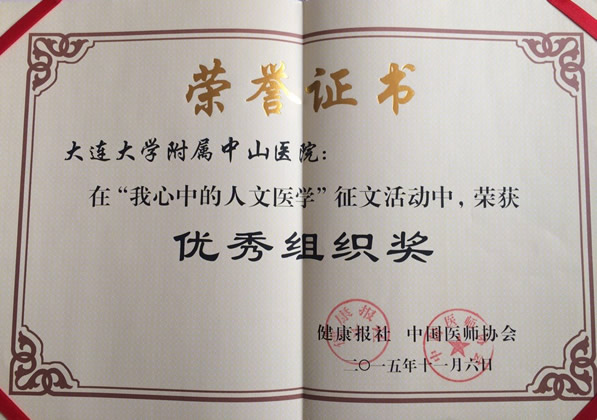 荣誉证书
大连大学附属中山医院：
在“我心中的人文医学”征文活动中，荣获
优秀组织奖
健康报社 中国医师协会
二〇一五年十一月六日